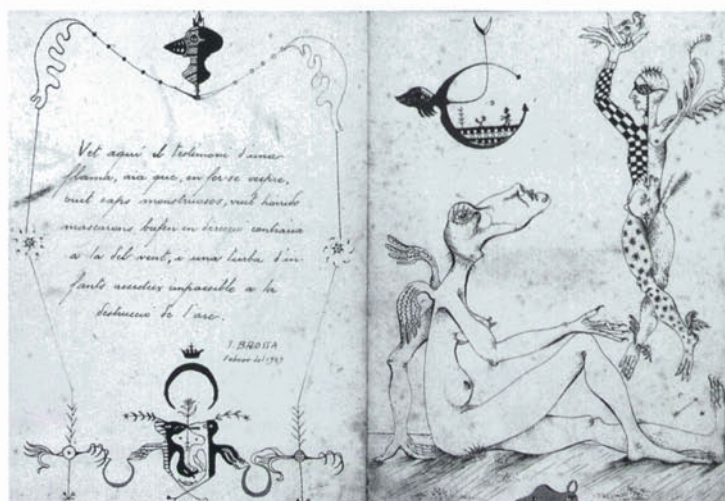 Vet aquí el testimoni d'una
flama, ara que, en fer-se vespre,
vuit caps monstruosos, vuit horribles
mascarons bufen en direcció contrària
a la del vent, i una turba d'in-
fants assisteix impassible a la
destrucció de l'arc.
J. BROSSA
Febrer del 1949